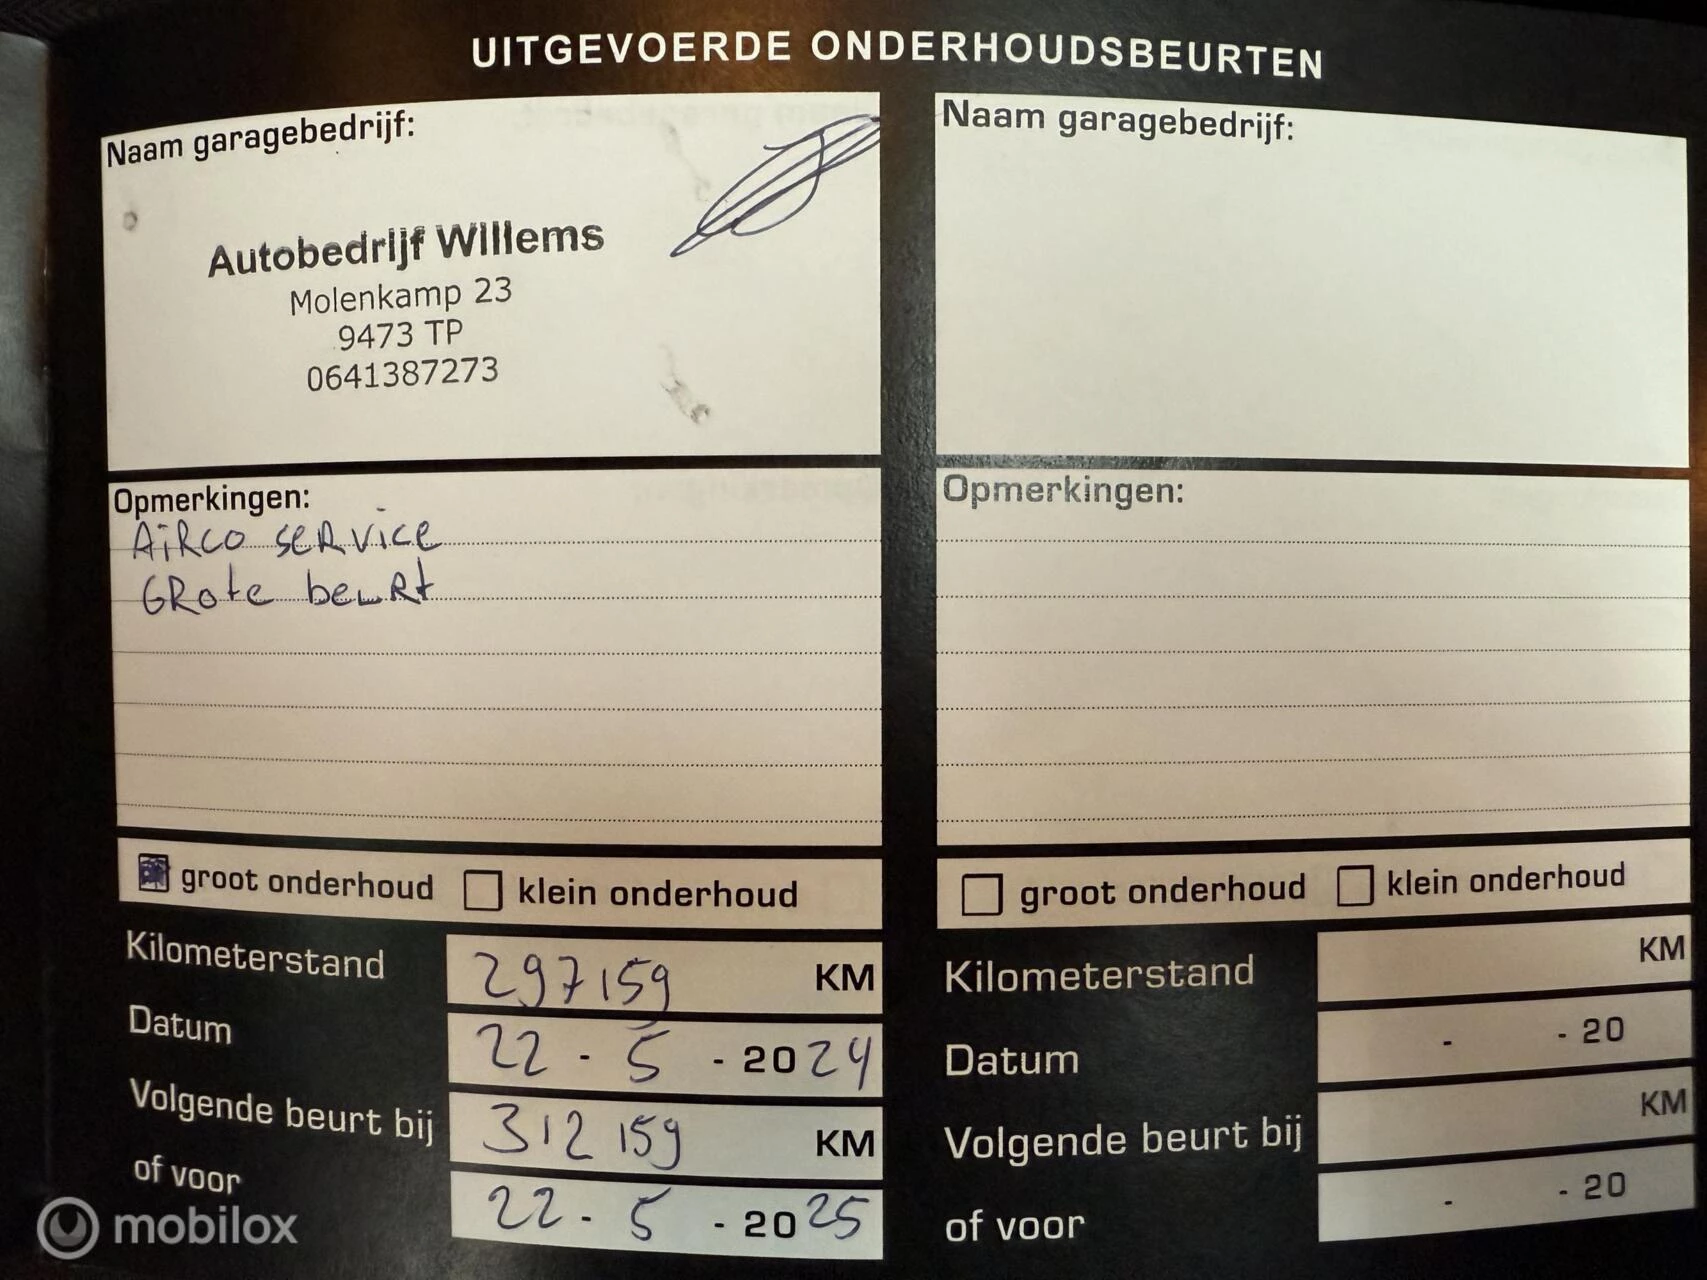 UITGEVOERDE ONDERHOUDSBEURTEN
Naam garagebedrijf:
Autobedrijf Willems
Molenkamp 23
9473 TP
0641387273
Opmerkingen:
Airco service
Grote beurt
groot onderhoud klein onderhoud
Kilometerstand 297159 KM
Datum 22 - 5 - 2024
Volgende beurt bij 312 159 KM
of voor 22 - 5 - 2025
Naam garagebedrijf:
Opmerkingen:
groot onderhoud klein onderhoud
Kilometerstand KM
Datum - - 20
Volgende beurt bij KM
of voor - - 20
mobilox